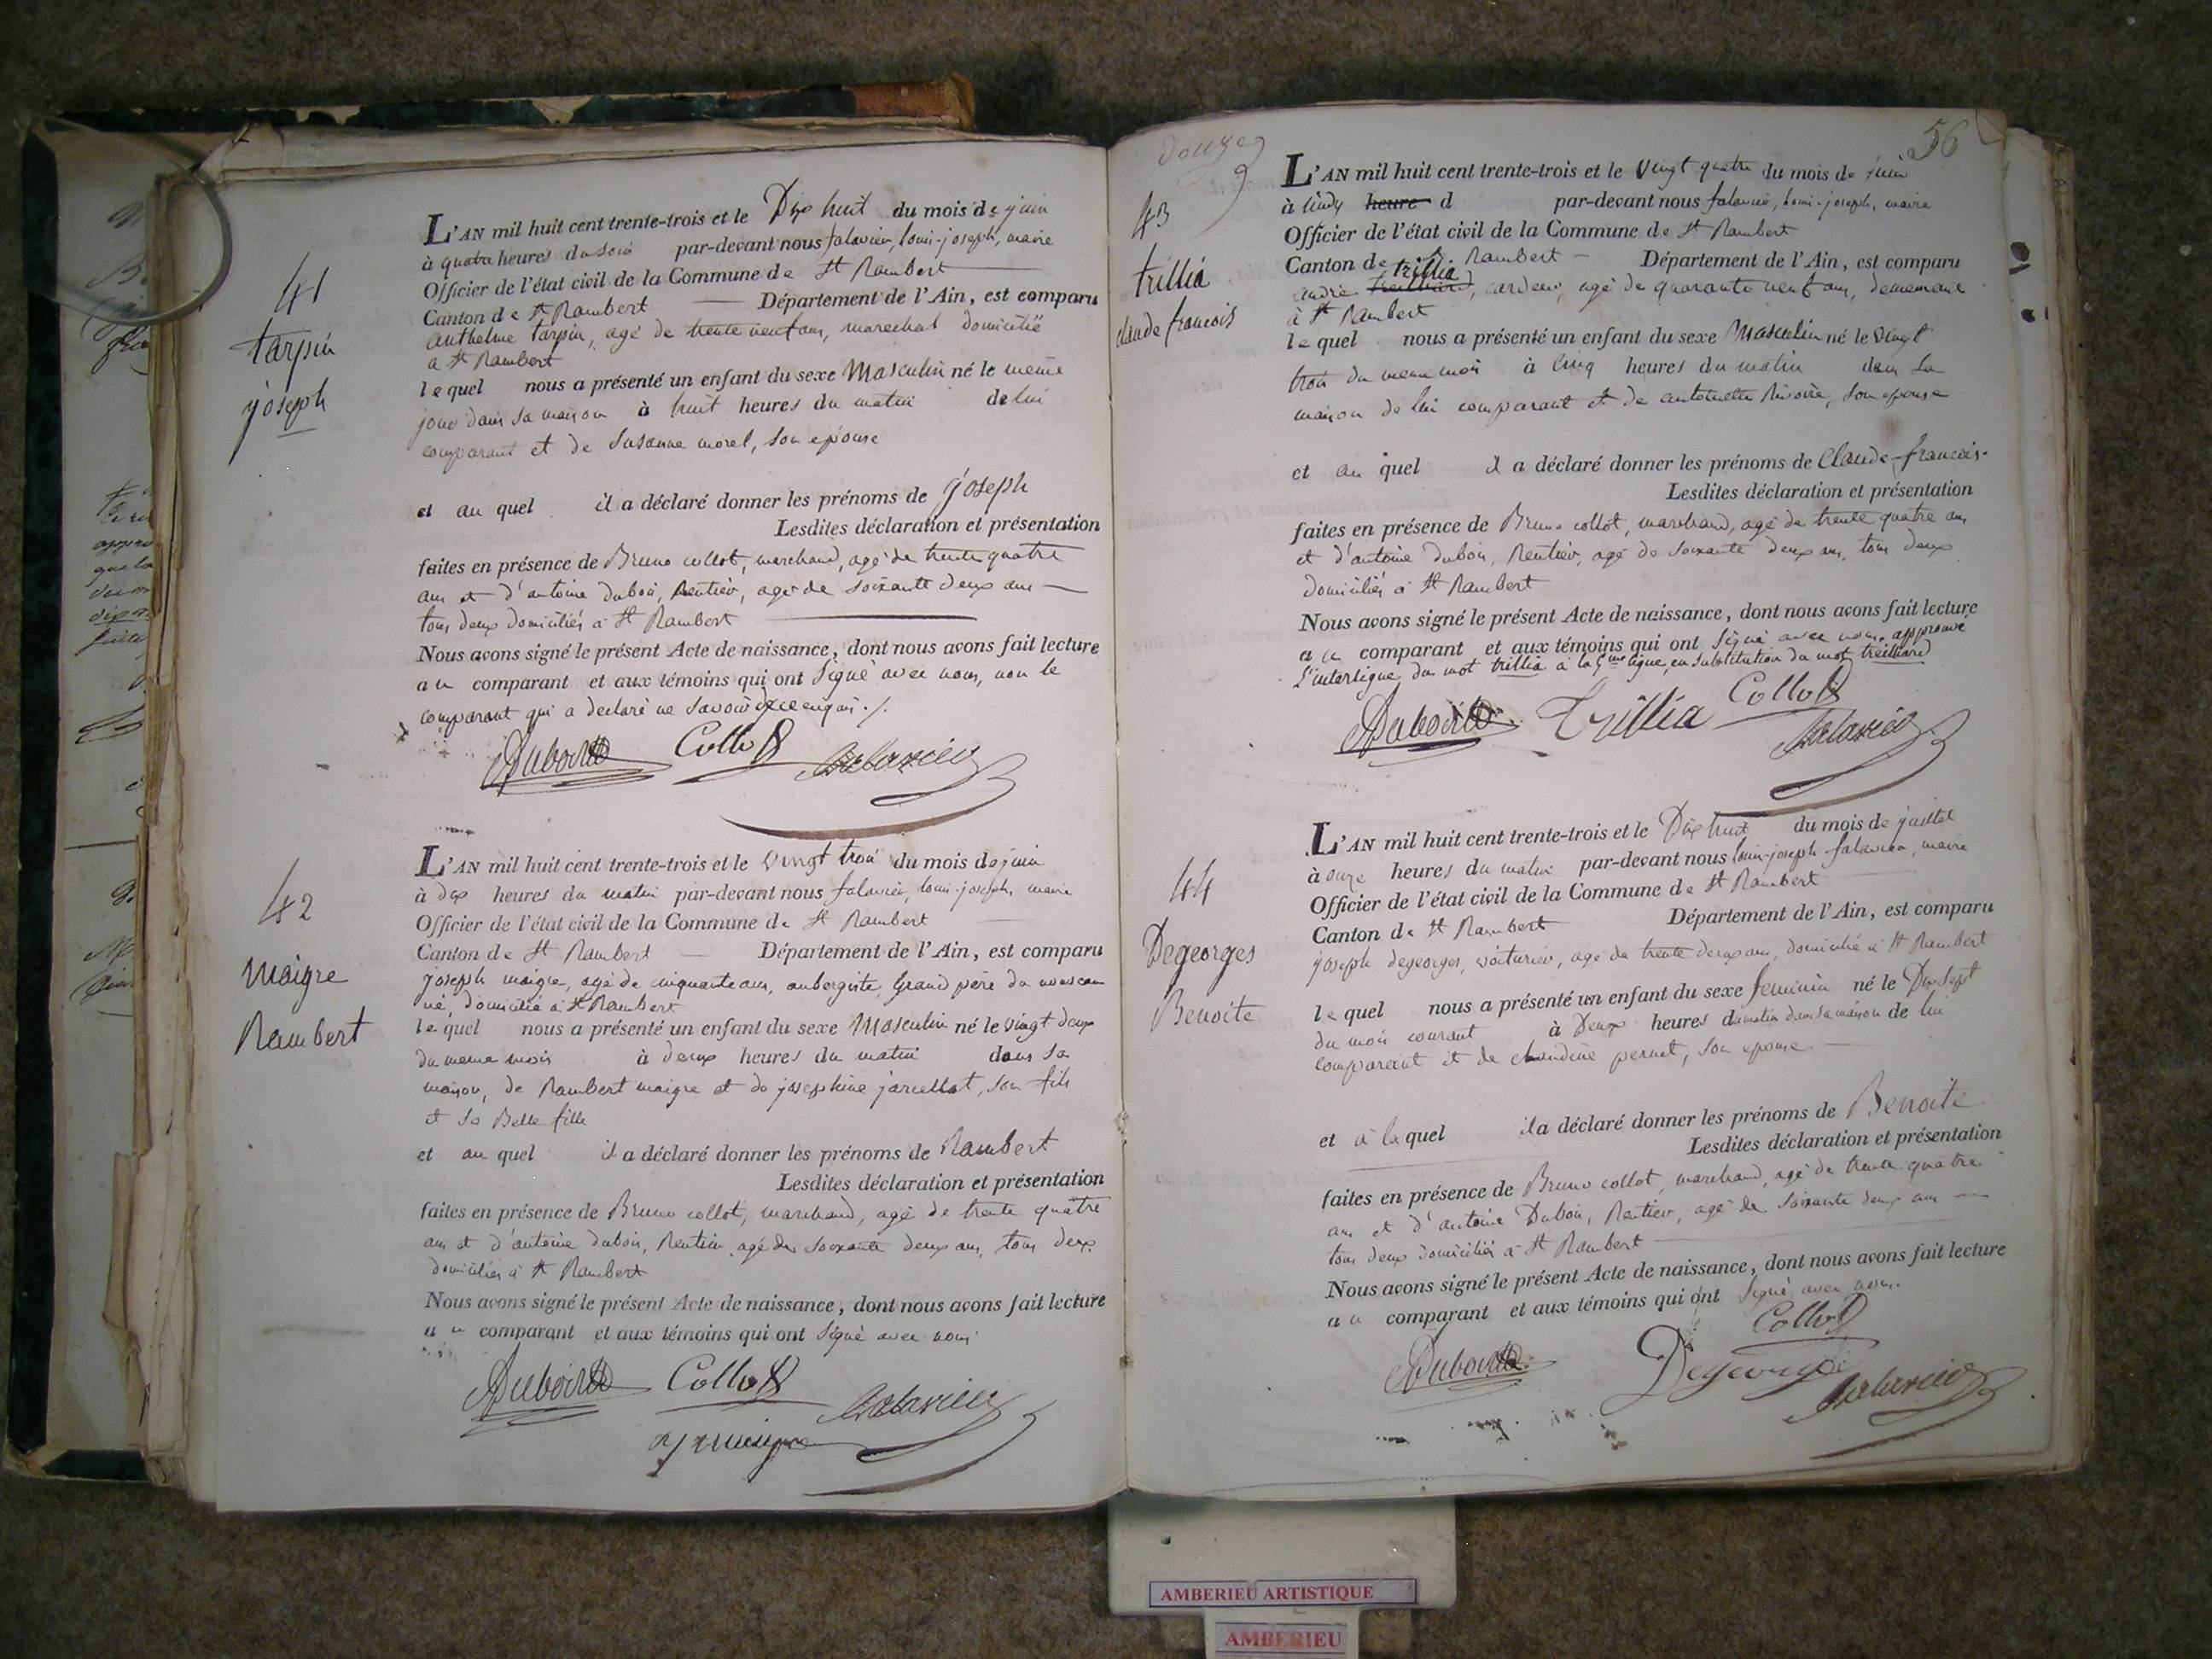 41
tarpin
joseph
L'AN mil huit cent trente-trois et le Dix huit du mois de juin
à quatre heures du soir par-devant nous falavier, louis-joseph, maire
Officier de l'état civil de la Commune de St Rambert
Canton de St Rambert Département de l'Ain, est comparu
anthelme tarpin, agé de trente neuf ans, marechal domicilié
a St Rambert
lequel nous a présenté un enfant du sexe Masculin né le même
jour dans sa maison à huit heures du matin de lui
comparant et de Susanne morel, son epouse
et au quel il a déclaré donner les prénoms de joseph
Lesdites déclaration et présentation
faites en présence de Bruno collot, marchand, agé de trente quatre
ans et d'antoine dubois, Rentier, agé de soixante deux ans
tous deux domiciliés à St Rambert
Nous avons signé le présent Acte de naissance, dont nous avons fait lecture
au comparant et aux témoins qui ont Signé avec nous, non le
comparant qui a declaré ne savoir de ce enquis ./.
Dubois Collot falavier
42
maigre
Rambert
L'AN mil huit cent trente-trois et le vingt trois du mois de juin
à dix heures du matin par-devant nous falavier, louis-joseph, maire
Officier de l'état civil de la Commune de St Rambert
Canton de St Rambert Département de l'Ain, est comparu
joseph maigre, agé de cinquante ans, aubergiste, Grand père du nouveau
né, domicilié à St Rambert
lequel nous a présenté un enfant du sexe Masculin né le vingt deux
du meme mois à deux heures du matin dans sa
maison, de Rambert maigre et de josephine jarcellat, son fils
et sa Belle fille
et au quel il a déclaré donner les prénoms de Rambert
Lesdites déclaration et présentation
faites en présence de Bruno collot, marchand, agé de trente quatre
ans et d'antoine dubois, Rentier, agé de soixante deux ans, tous deux
domiciliés à St Rambert
Nous avons signé le présent Acte de naissance, dont nous avons fait lecture
au comparant et aux témoins qui ont Signé avec nous
Dubois Collot falavier
56
douze
43
trillia
claude francois
L'AN mil huit cent trente-trois et le vingt quatre du mois de juin
à heure d par-devant nous falavier, louis-joseph, maire
Officier de l'état civil de la Commune de St Rambert
Canton de St Rambert Département de l'Ain, est comparu
trillia
andré treilliard, cardeur, agé de quarante neuf ans, demeurant
à St Rambert
lequel nous a présenté un enfant du sexe Masculin né le vingt
trois du meme mois à cinq heures du matin dans sa
maison de lui comparant et de antoinette Rivoire, son epouse
et au quel il a déclaré donner les prénoms de Claude-francois.
Lesdites déclaration et présentation
faites en présence de Bruno collot, marchand, agé de trente quatre ans
et d'antoine dubois, Rentier, agé de soixante deux ans, tous deux
domiciliés à St Rambert
Nous avons signé le présent Acte de naissance, dont nous avons fait lecture
au comparant et aux témoins qui ont Signé avec nous. approuvé
l'interligne du mot trillia à la 5me ligne, en substitution du mot treilliard
Dubois trillia Collot falavier
44
Degeorges
Benoite
L'AN mil huit cent trente-trois et le Dix huit du mois de juillet
à onze heures du matin par-devant nous louis-joseph falavier, maire
Officier de l'état civil de la Commune de St Rambert
Canton de St Rambert Département de l'Ain, est comparu
joseph degeorges, voiturier, agé de trente deux ans, domicilié à St Rambert
lequel nous a présenté un enfant du sexe feminin né le Dix sept
du mois courant à Deux heures du matin dans sa maison de lui
comparant et de claudine pernet, son epouse
et à la quel il a déclaré donner les prénoms de Benoite
Lesdites déclaration et présentation
faites en présence de Bruno collot, marchand, agé de trente quatre
ans et d'antoine Dubois, Rentier, agé de soixante deux ans
tous deux domiciliés à St Rambert
Nous avons signé le présent Acte de naissance, dont nous avons fait lecture
au comparant et aux témoins qui ont Signé avec nous.
Dubois Degeorges Collot falavier
AMBERIEU ARTISTIQUE
AMBERIEU